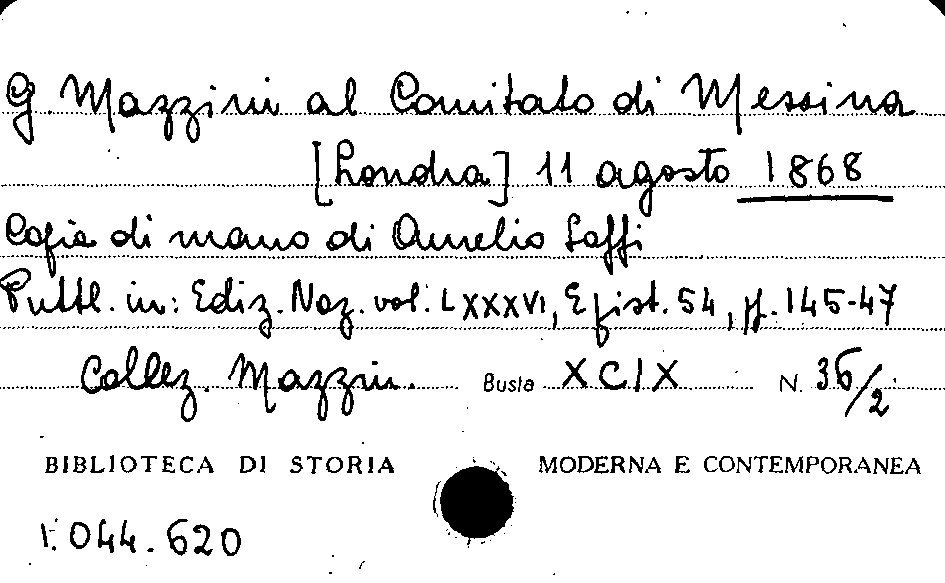 G. Mazzini al Comitato di Messina
[Londra] 11 agosto 1868
Copia di mano di Aurelio Saffi
Pubbl. in: Ediz. Naz. vol. LXXXVI, Epist. 54, pp. 145-47
Collez. Mazzin. Busta XCIX N. 36/2
BIBLIOTECA DI STORIA MODERNA E CONTEMPORANEA
1.044.620